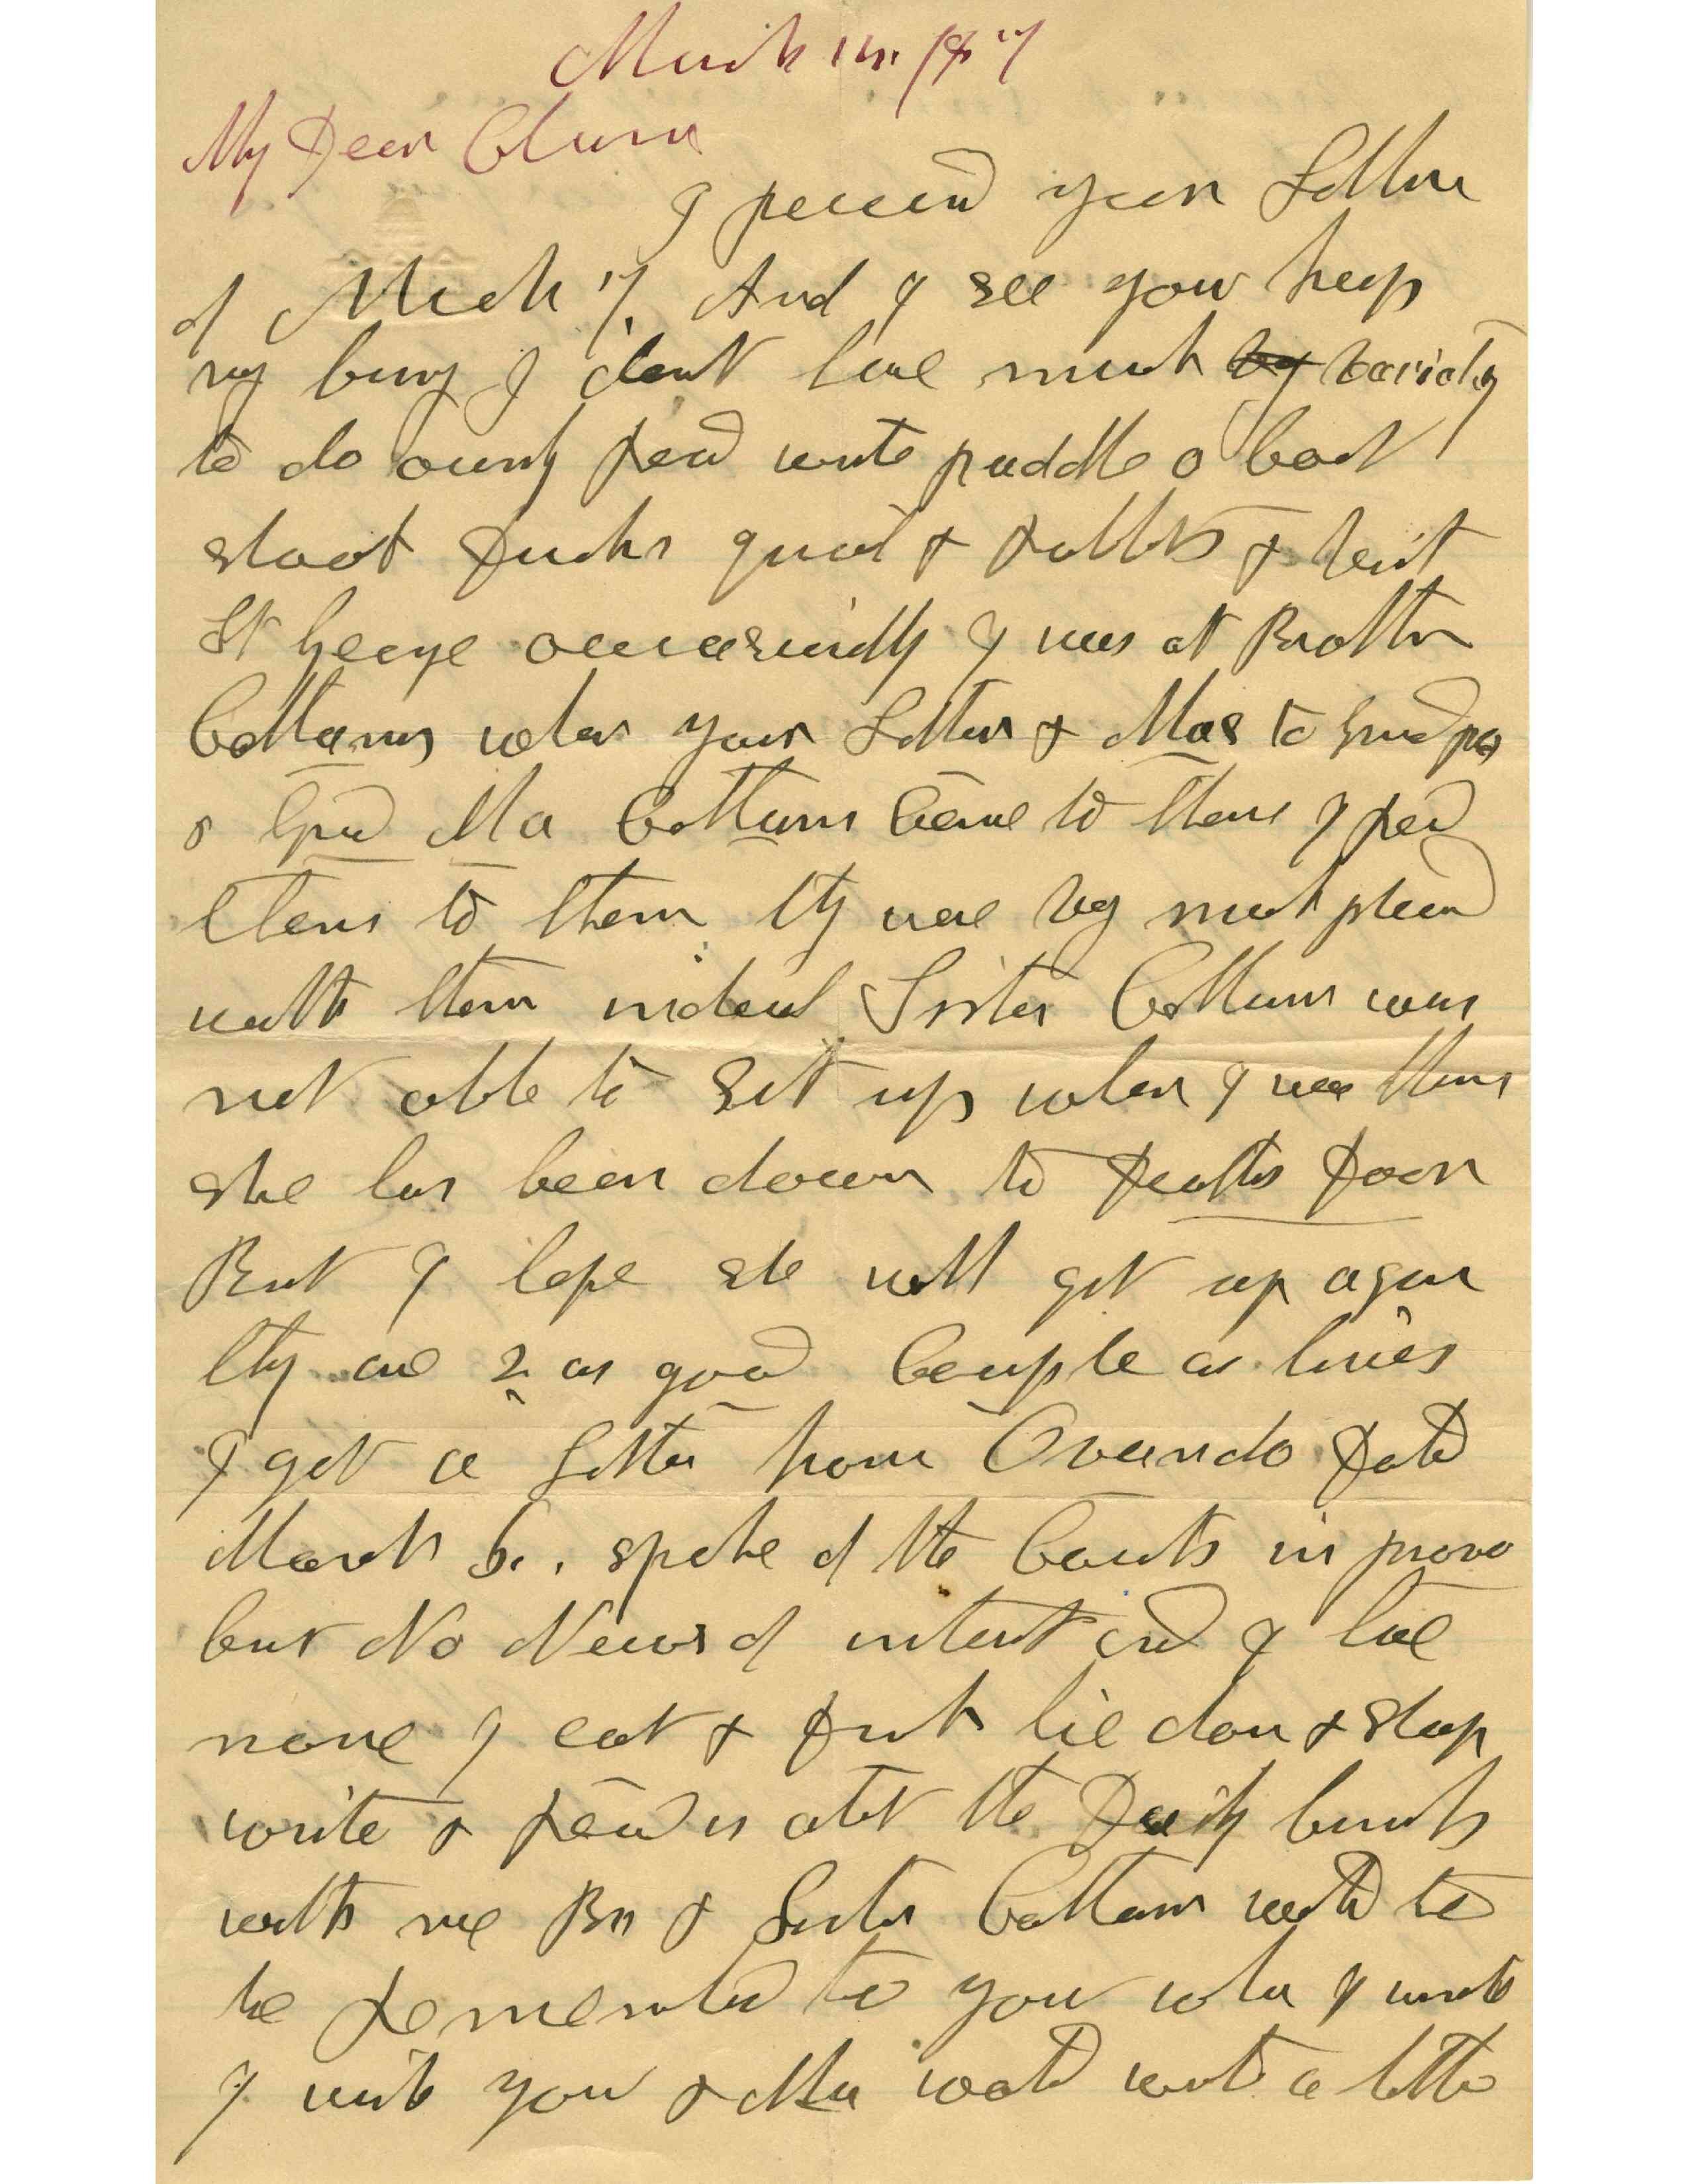 March 14. 1887
My Dear Clara
I received your Letter
of Mch 7. And I see you keep
vry busy I dont have much variety
to do ownly Read write paddle a boat
shoot Ducks quail & Rabbits & visit
St George occasionally I was at Brother
Cottams when your Letter & Mas to Grandpa
& Grand Ma Cottam Came to them I Read
them to them they were very much pleased
with them indeed Sister Cottam was
not able to set up when I was there
she has been down to Deaths Door
But I hope she will get up again
they are 2 as good Couple as lives
I got a Letter from Ovando Dated
March 6. spoke of the Courts in provo
but No News of interest and I have
none I eat & Drink lie down & sleep
write & Read is about the Daily
with me Bro & Sister Cottam wanted to
be Remembered to you when I wrote
I wish you & Ma would write a letter